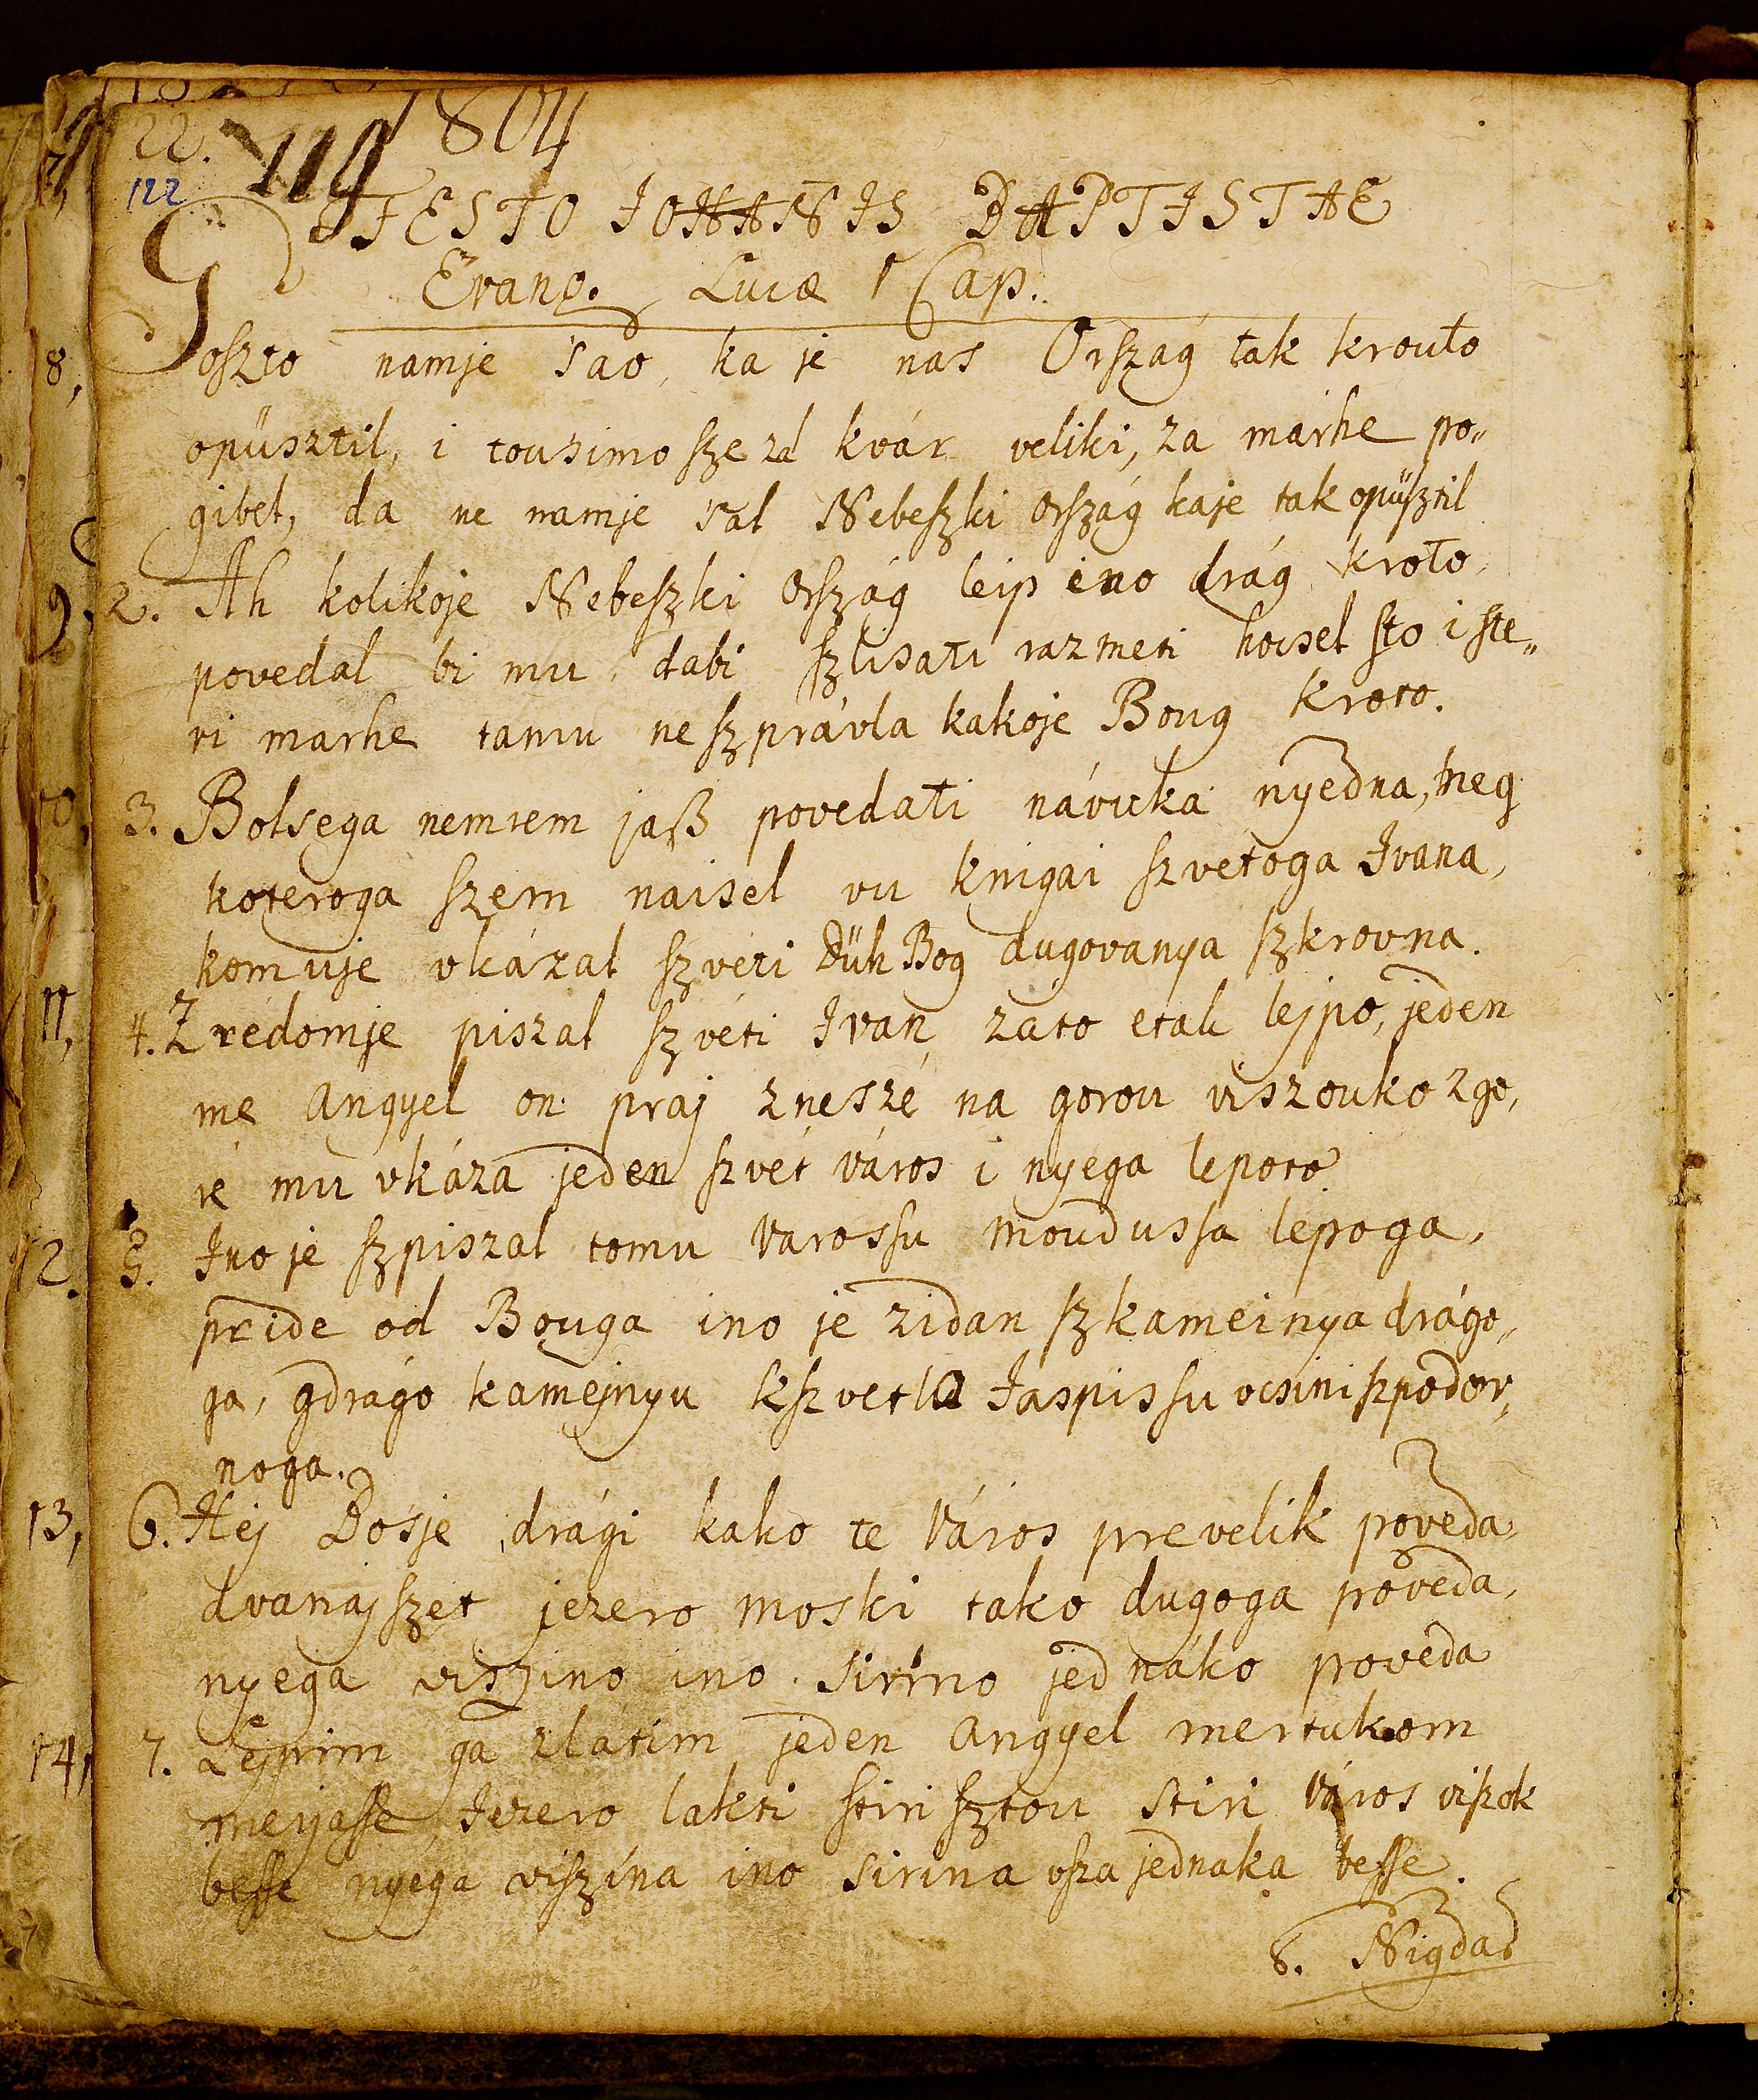 1804
22. 119
122
FESTO IOHANIS BAPTISTAE
Evang. Lucæ 1 Cap.
Goszto namje sao, ka je nas Orszag tak krouto
opüsztil, i tousimo sze za kvár veliki, za marhe po„
gibel, da ne namje sal Nebeszki ország kaje tak opüsztil
2. Ah kolikoje Nebeszki ország leip ino drág kroto,
povedal bi mu, dabi szlisati razmeti hocsel sto i ste„
ri marhe tamu ne szprávla kakoje Boug kroto.
3. Bolsega nemrem jaß povedati návuka nyedna, neg
koteroga szem naisel vu knigai szvetoga Ivana,
komuje vkázal szvéti Düh Bog dugovanya szkrovna.
4. Z rédomje piszal szvéti Ivan, zato etak lejpo, jeden
me angyel on praj znesze na gorou viszouko zgo,
re mu vkáza jeden szvét város i nyega lepoto
5. Ino je szpiszal tomu varossu moudussa lepoga,
pride od Bouga ino je zidan szkameinya drágo„
ga, gdrágo kamejnyu kszvetlo Jaspissu ocsini szpodov„
noga.
6. Hej Bosje drági kako te város prevelik poveda,
dvanaj szet jezero moski tako dugoga poveda,
nyega viszino ino sirino jednáko poveda
7. Lejpim ga zlatim jeden angyel mertukom
merjasse, Jezero lakti stiri sztou stiri város viszok
besse nyéga viszina ino sirina vsza jednaka besse.
8. Nigdar
8,
9,
10,
11,
12.
13,
14,